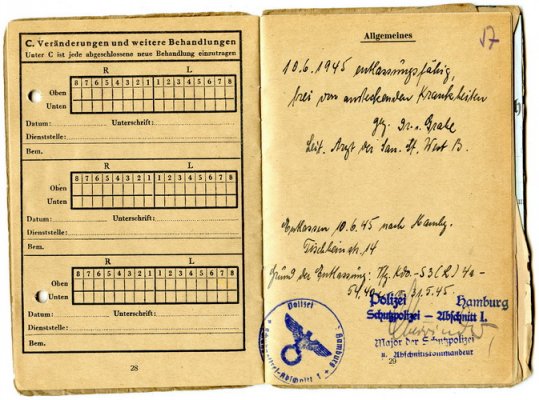 C. Veränderungen und weitere Behandlungen
Unter C ist jede abgeschlossene neue Behandlung einzutragen
R L
8 7 6 5 4 3 2 1 1 2 3 4 5 6 7 8
Oben
Unten
Datum: Unterschrift:
Dienststelle:
Bem.
R L
8 7 6 5 4 3 2 1 1 2 3 4 5 6 7 8
Oben
Unten
Datum: Unterschrift:
Dienststelle:
Bem.
R L
8 7 6 5 4 3 2 1 1 2 3 4 5 6 7 8
Oben
Unten
Datum: Unterschrift:
Dienststelle:
Bem.
28
Allgemeines
17
10.6.1945 entlassungsfähig,
frei von ansteckenden Krankheiten
gez. Dr. Grabe
Leit. Arzt der San. St. West B.
Entlassen 10.6.45 nach Hambg.
Tischbeinstr. 14
Grund der Entlassung: Kdo.-
5.45
Polizei Hamburg
Schutzpolizei – Abschnitt I.
Major der Schutzpolizei
u. Abschnittskommandeur
29
Polizei
Hamburg
Abschnitt 1